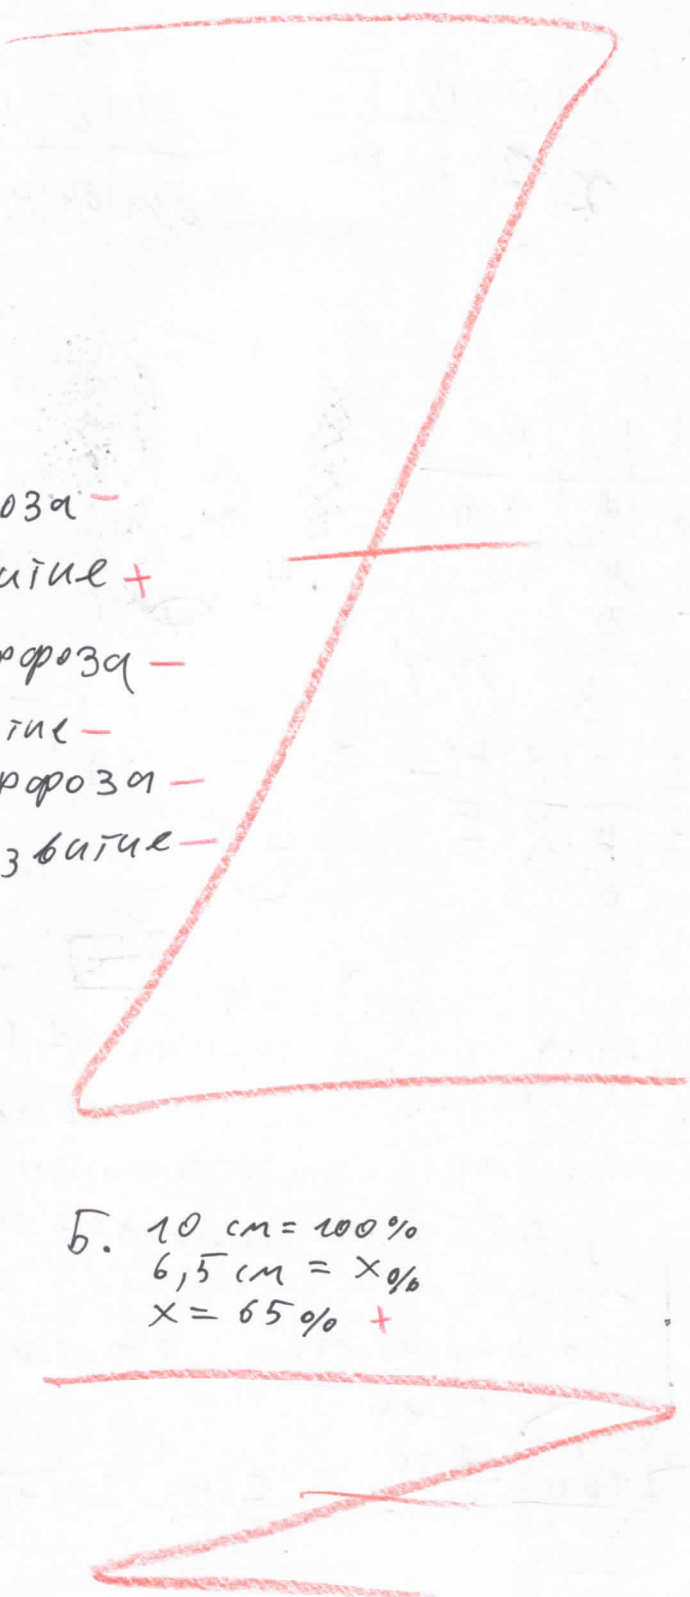 оза –
итие +
рфоза –
тие –
рфоза –
звитие –
Б. 10 см = 100%
6,5 см = x%
x = 65% +